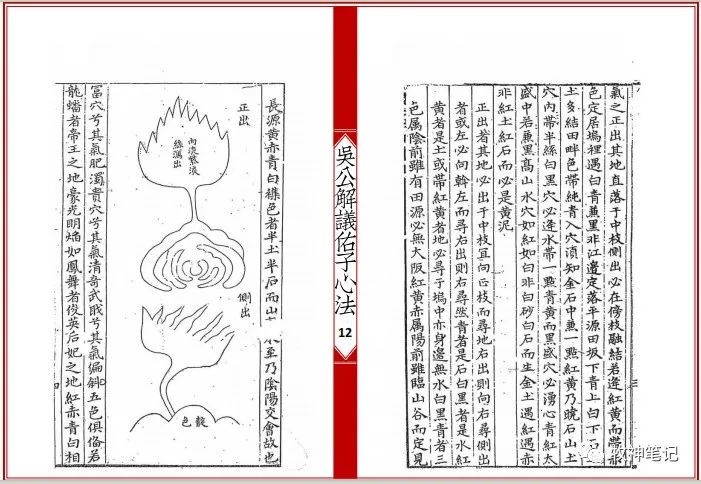 氣之正出其地直落于中枝側出必在傍枝融結若逢紅黃而帶赤
色定居塢裡遇白青兼黑非江邊定落平源田坂下青上白下石
土多結田畔色帶純青入穴湏知金石中兼一點紅黃乃曉石山土
穴內帶半絲白黑穴必逢水帶一點青黃而黑盛穴必湧心青紅太
盛中若兼黑高山水穴如紅如白非白砂白石而生金土遇紅遇赤
非紅土紅石而必是黃泥
正出者其地必出于中枝宜向正枝而尋地右出則向右尋側出
者或左必向斡左而尋右出則右尋然青者是石白黑者是水紅
黃者是土或帶紅黃者地必尋于塢中亦身邊無水白黑青者三
色属陰前雖有田源必無大阪紅黃赤属陽前雖臨山谷而定見
三
吳公解議佑子心法
12
長源黃赤青白襍色者半土半石而山
水至乃陰陽交會故也
正出
內滾紫液
絲濶出
側出
色靛
冨穴兮其氣肥濁貴穴兮其氣清奇武職兮其氣偏斜五色俱俻若
龍蟠者帝王之地豪光明焔如鳳舞者俊英后妃之地紅赤青白相
神笔记